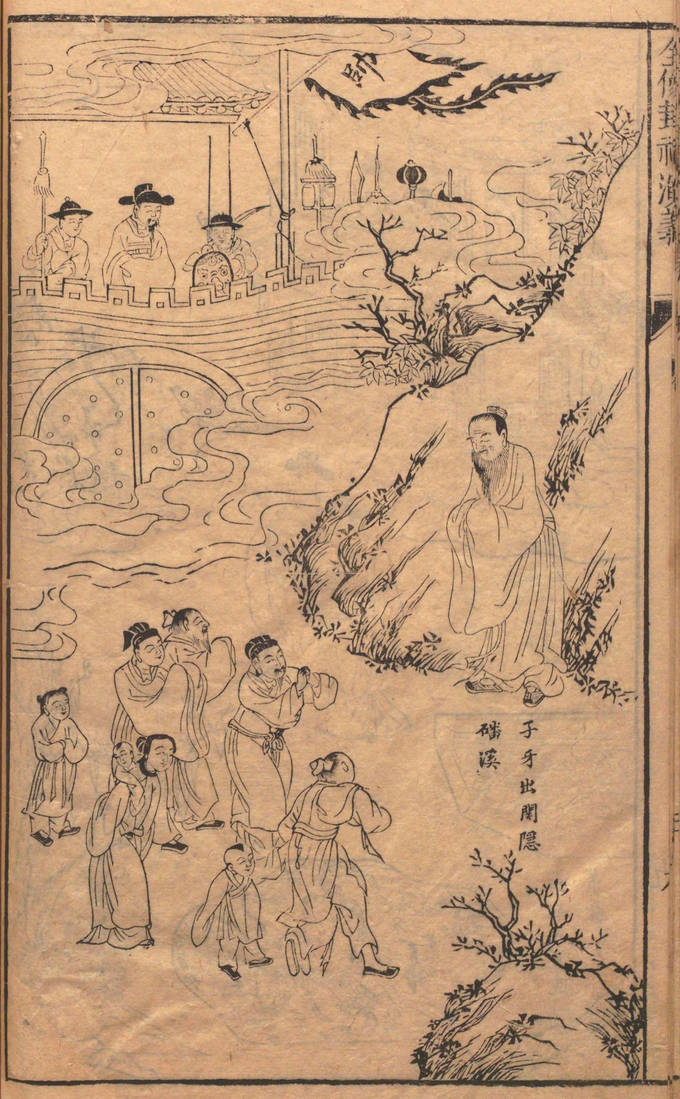 全像封神演義
帥
子牙出関隱
磻溪